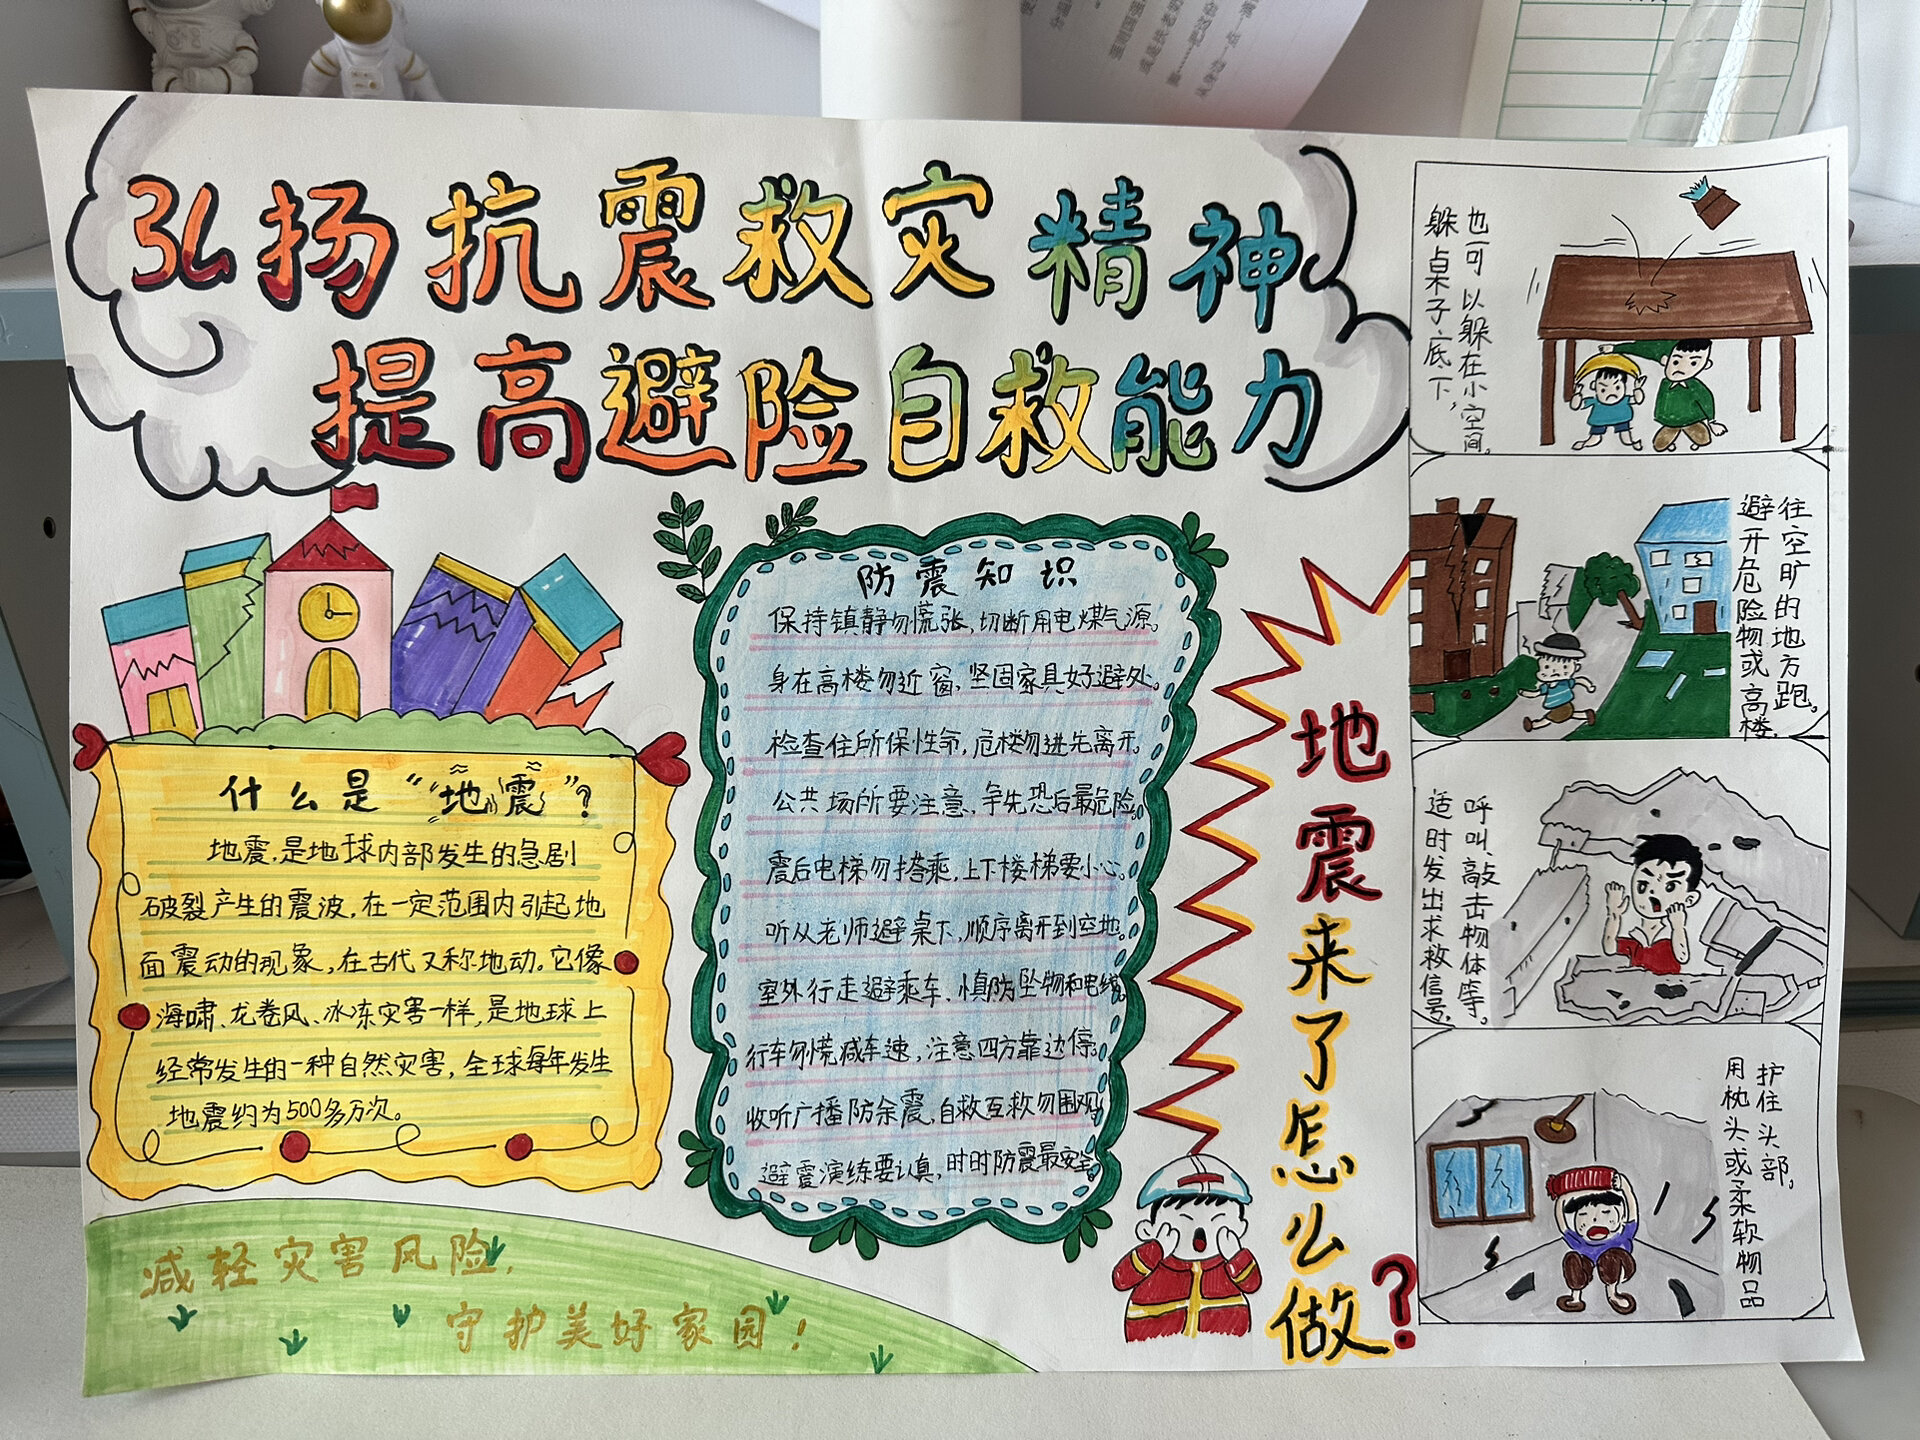 弘扬抗震救灾精神
提高避险自救能力
什么是“地震”?
地震,是地球内部发生的急剧
破裂产生的震波,在一定范围内引起地
面震动的现象,在古代又称地动。它像
海啸、龙卷风、冰冻灾害一样,是地球上
经常发生的一种自然灾害,全球每年发生
地震约为500多万次。
减轻灾害风险,
守护美好家园!
防震知识
保持镇静勿慌张,切断用电煤气源。
身在高楼勿近窗,坚固家具好避处。
检查住所保性命,危楼勿进先离开。
公共场所要注意,争先恐后最危险。
震后电梯勿搭乘,上下楼梯要小心。
听从老师避桌下,顺序离开到空地。
室外行走避乘车、慎防坠物和电线。
行车勿慌减车速,注意四方靠边停。
收听广播防余震,自救互救勿围观。
避震演练要认真,时时防震最安全。
地震来了怎么做?
躲桌子底下,
也可以躲在小空间。
往空旷的地方跑。
避开危险物或高楼.
适时发出求救信号,
呼叫、敲击物体等。
护住头部。
用枕头或柔软物品